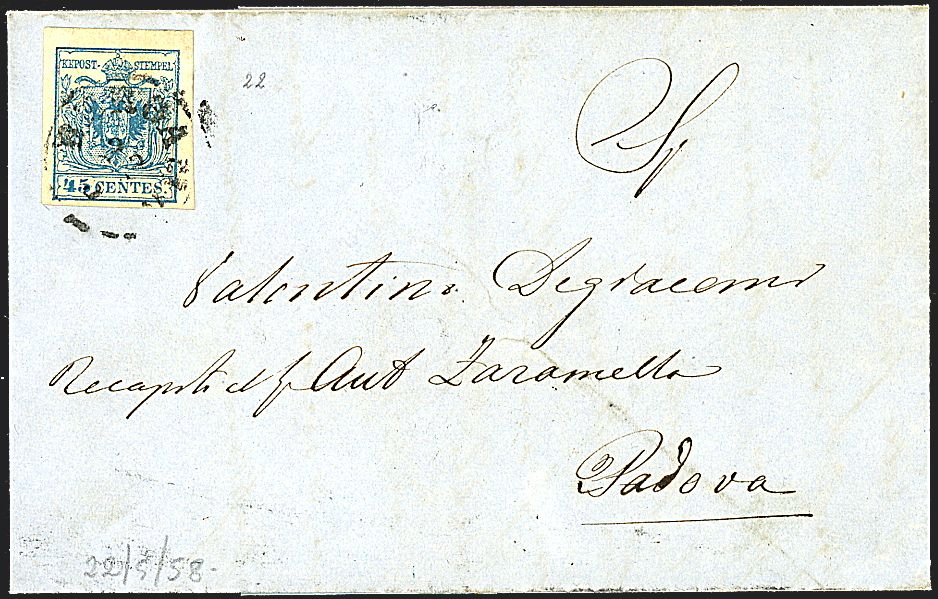 KKPOST-STEMPEL
45 CENTES.
22
Sr
Valentini Degiacomi
Recapito Ant Zaramella
Padova
22/5/58.